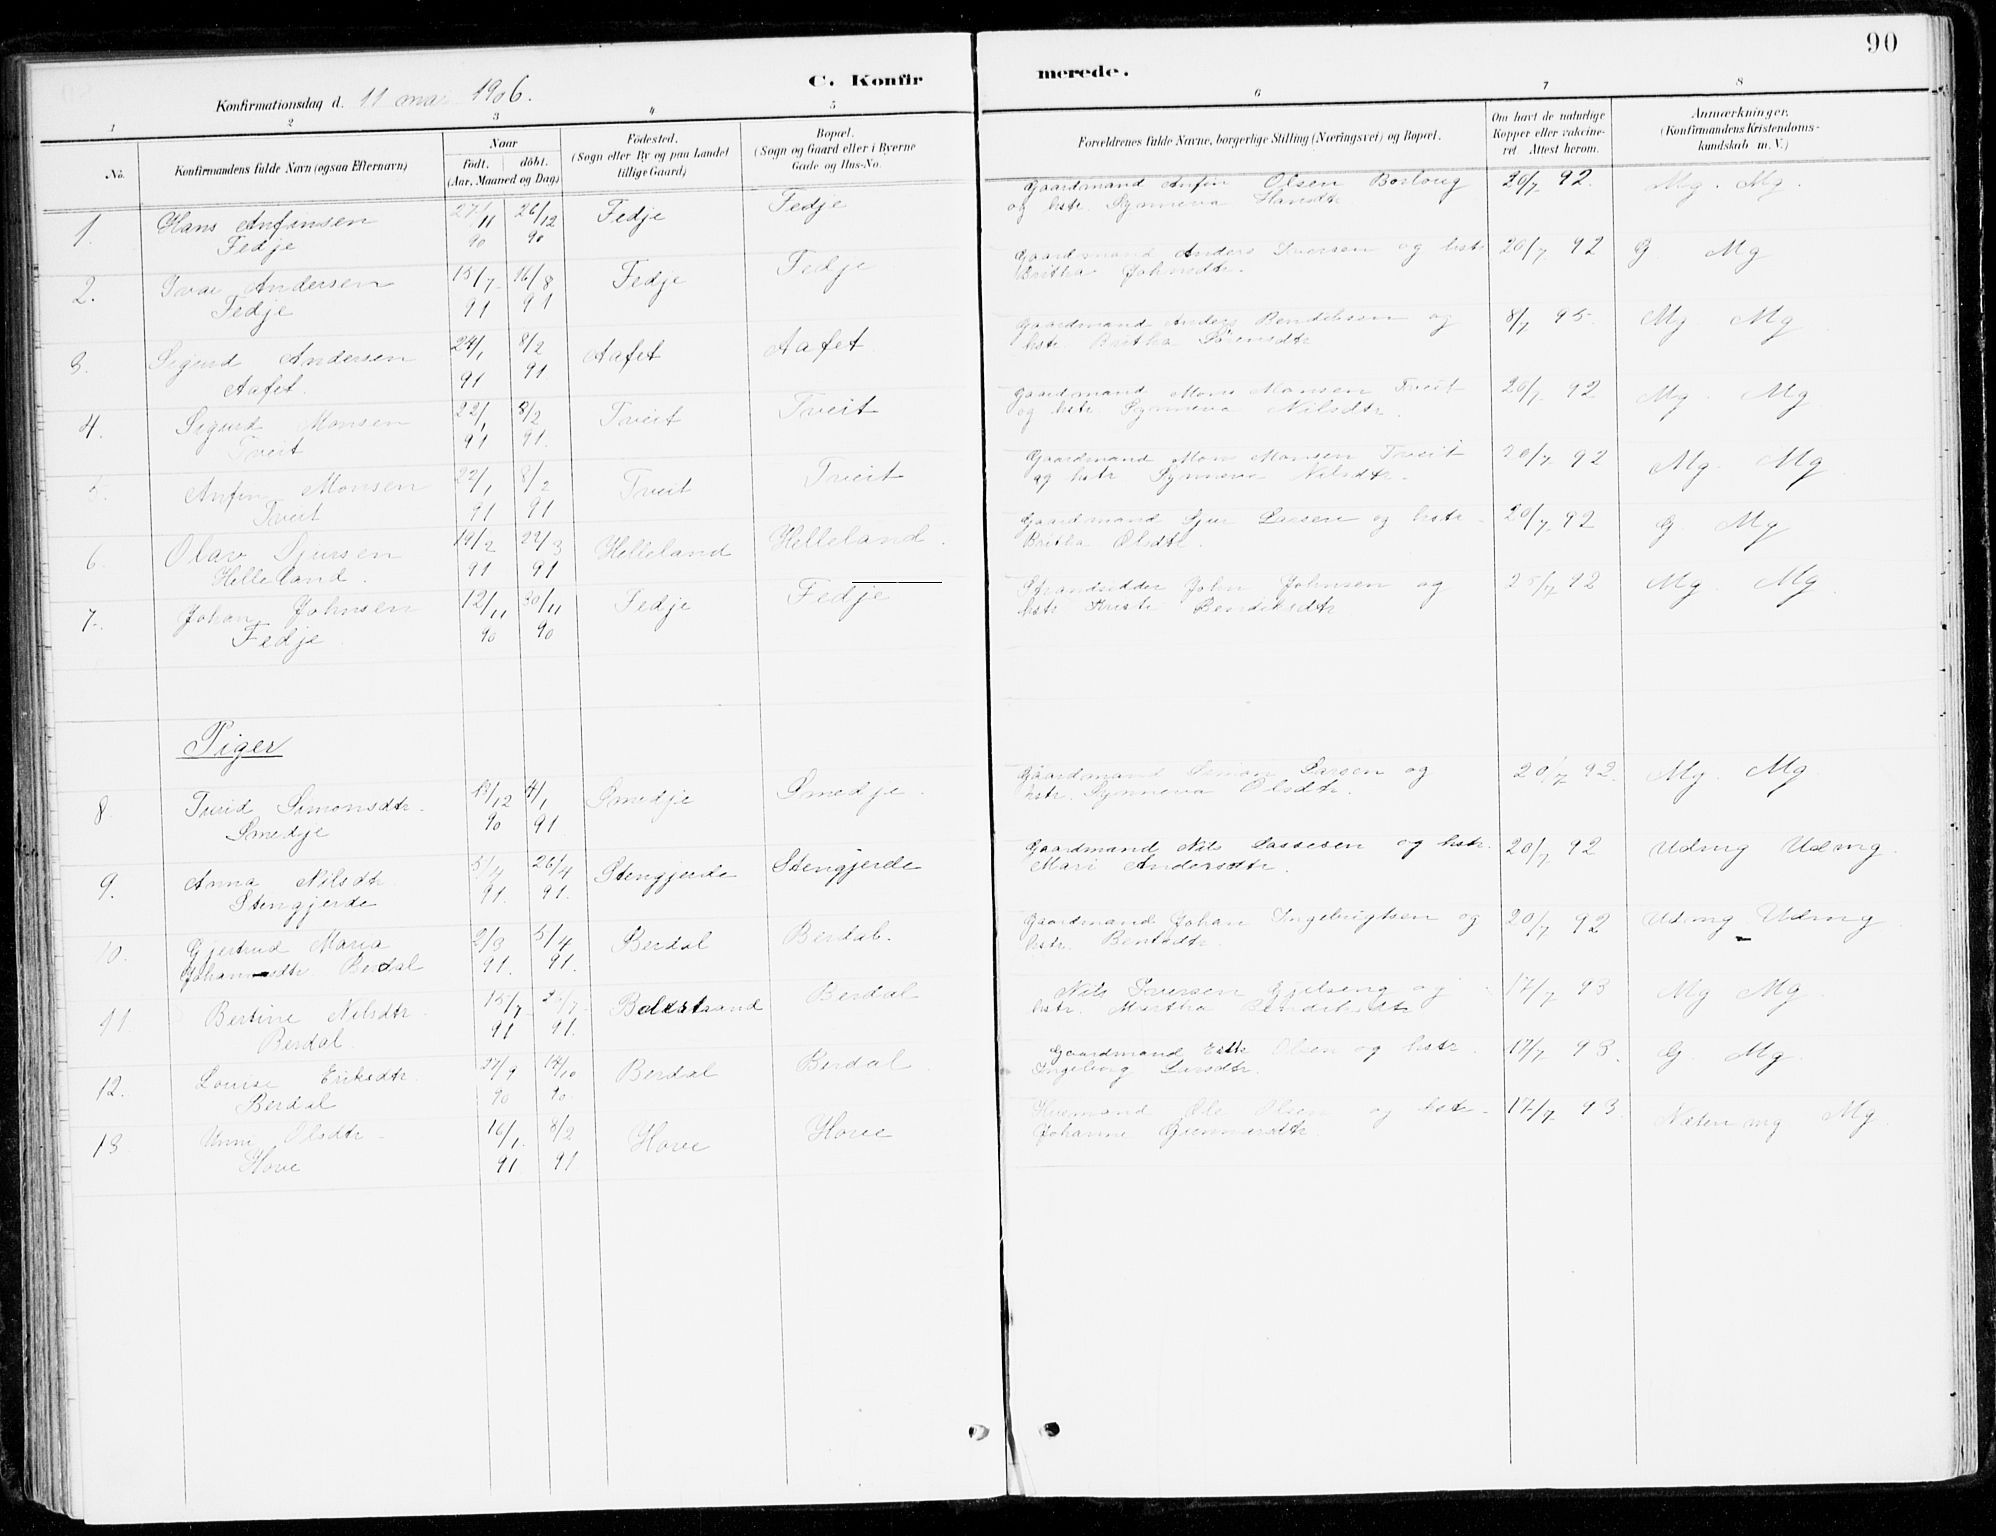 90
C. Konfirmerede.
Konfirmationsdag d. 11 mai 1906.
1 2 3 4 5 6 7 8
No.
Konfirmandens fulde Navn (ogsaa Efternavn)
Naar
født. døbt.
(Aar, Maaned og Dag)
Fødested.
(Sogn eller By og paa Landet
tillige Gaard)
Bopæl.
(Sogn og Gaard eller i Byerne
Gade og Hus-No.
Forældrenes fulde Navne, borgerlige Stilling (Næringsvei) og Bopæl.
Om havt de naturlige
Kopper eller vakcine-
ret. Attest herom.
Anmærkninger.
(Konfirmandens Kristendoms-
kundskab m. V.)
1. Hans Anfinsen 27/11 26/12 Fedje Fedje Gaardmand Anfin Olsen Borlaug 20/7 92. Mg. Mg.
Fedje 90 90 og hstr. Synneva Hansdtr.
2. Ivar Andersen 15/7 16/8 Fedje Fedje Gaardmand Anders Iversen og hstr 20/7 92 G Mg
Fedje 91 91 Britha Johnsdtr.
3. Sigurd Andersen 24/1 8/2 Aafet Aafet. Gaardmand Anders Bendiksen og 8/7 95 Mg. Mg
Aafet. 91 91 hstr. Britha Sørensdtr
4. Sigurd Monsen 22/1 8/2 Tveit Tveit Gaardmand Mons Monsen Tveit 20/7 92 Mg. Mg
Tveit 91 91. og hstr. Synneva Nilsdtr.
5. Anfin Monsen 22/1 8/2 Tveit Tveit Gaardmand Mons Monsen Tveit 20/7 92 Mg. Mg
Tveit 91 91 og hstr Synneva Nilsdtr.
6. Olav Sjursen 19/2 22/3 Helleland Helleland. Gaardmand Sjur Larsen og hstr. 20/7 92 G. Mg
Helleland. 91 91 Britha Olsdtr.
7. Johan Johnsen 12/11 30/11 Fedje Fedje Strandsidder John Johnsen og 25/7 92 Mg. Mg
Fedje. 90 90 hstr Kristi Bendiksdtr
Piger
8 Turid Simonsdtr. 13/12 4/1 Smedje Smedje. Gaardmand Simon Larsen og 20/7 92. Mg. Mg.
Smedje 90 91 hstr. Synneva Olsdtr.
9. Anna Nilsdtr. 5/4 26/4 Stengjerde Stengjerde Gaardmand Nils Lassesen og hstr. 20/7 92 Udmg Udmg.
Stengjerde 91. 91. Mari Andersdtr.
10. Gjertrud Maria 2/3 5/4 Berdal Berdal. Gaardmand Johan Ingebrigtsen og 20/7 92 Udmg Udmg.
Johannesdtr Berdal 91. 91. hstr. Bentsdtr.
11. Bertine Nilsdtr. 15/7 Balestrand Berdal Nils Iversen Gjelseng og 17/7 93 Mg Mg.
Berdal. 91 91. hstr. Martha Bendiksdtr
12. Louise Eriksdtr. 27/9 19/10 Berdal Berdal. Gaardmand Erik Olsen og hstr. 17/7 93. G. Mg.
Berdal 90 90. Ingeborg Larsdtr.
13 Unni Olsdtr. 16/1 8/2 Hove Hove Husmand Ole Olsen og hstr. 17/7 93. Næsten mg Mg.
Hove 91 91. Johanne Gunnarsdtr.